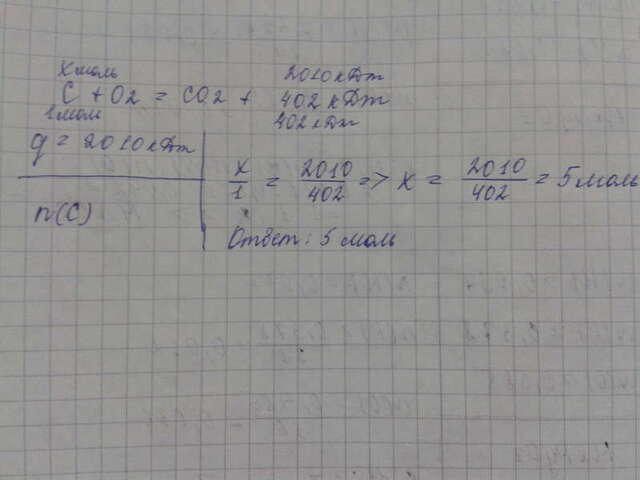 x моль 2010 кДж
C + O2 = CO2 + 402 кДж
1 моль 402 кДж
q = 2010 кДж
n(C)
x/1 = 2010/402 => x = 2010/402 = 5 моль
Ответ: 5 моль